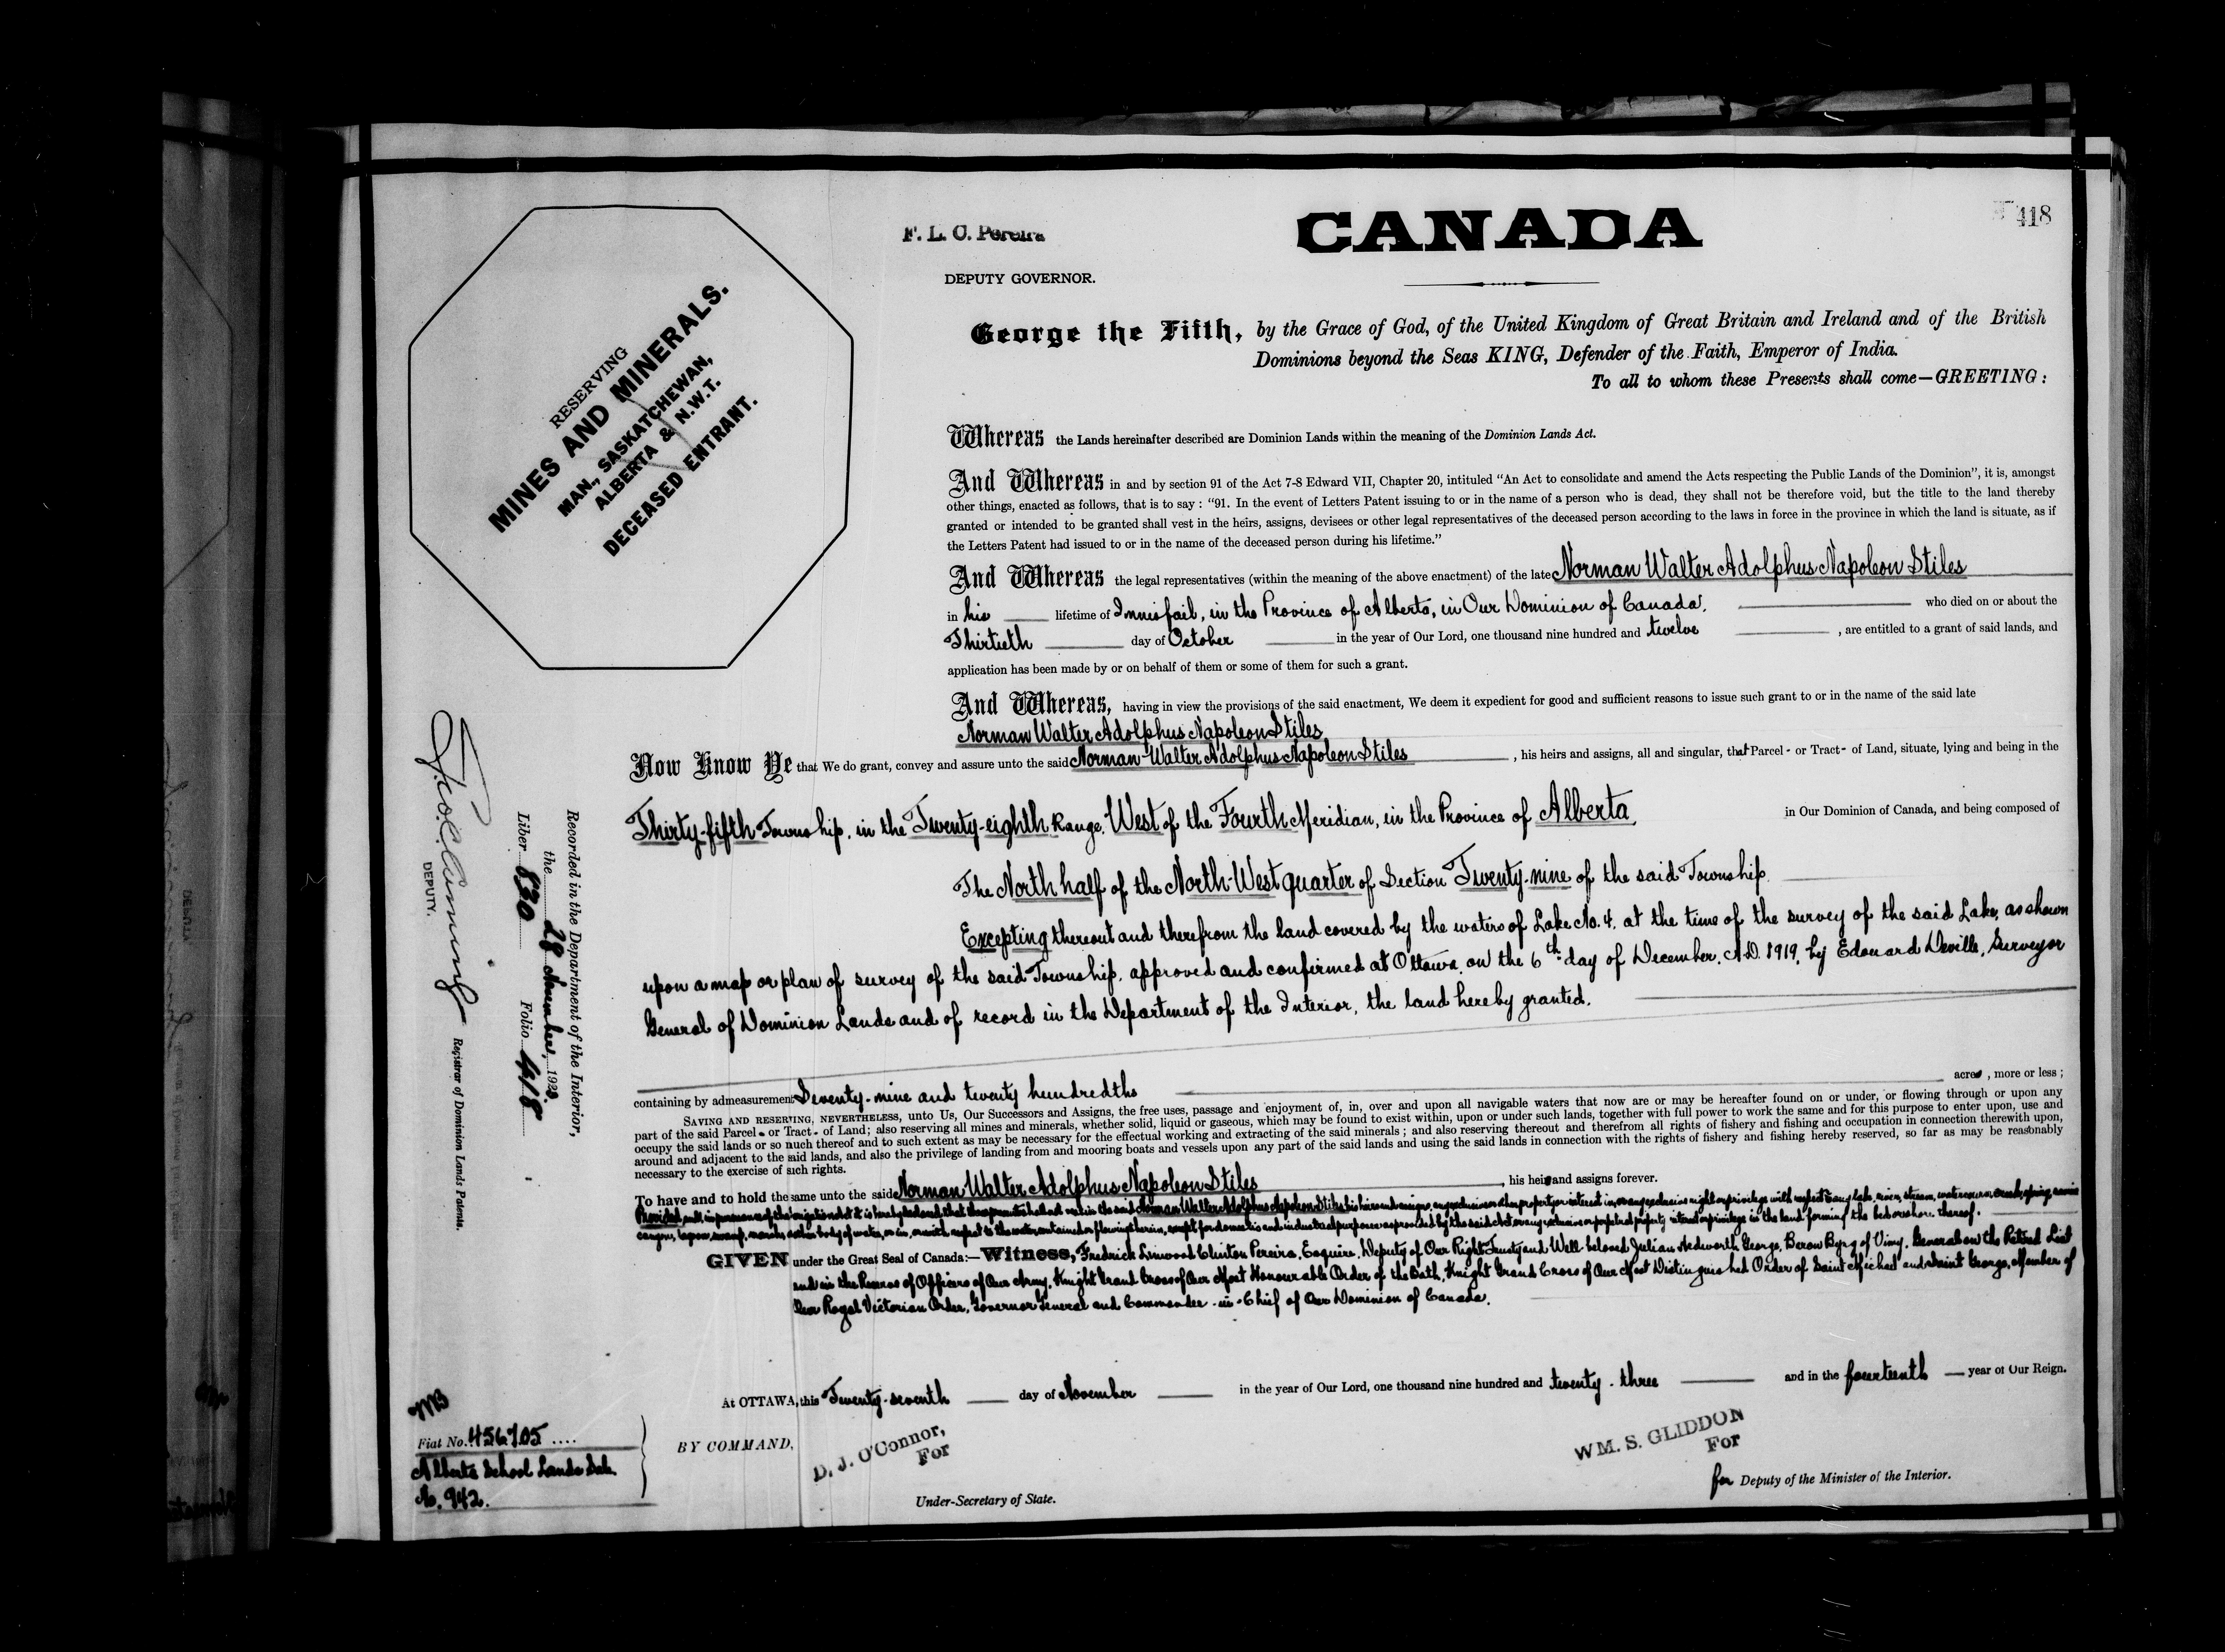 418
F. L. C. Pereira
CANADA
DEPUTY GOVERNOR.
RESERVING
MINES AND MINERALS.
MAN., SASKATCHEWAN,
ALBERTA & N.W.T.
DECEASED ENTRANT.
George the Fifth, by the Grace of God, of the United Kingdom of Great Britain and Ireland and of the British
Dominions beyond the Seas KING, Defender of the Faith, Emperor of India.
To all to whom these Presents shall come—GREETING:
Whereas the Lands hereinafter described are Dominion Lands within the meaning of the Dominion Lands Act.
And Whereas in and by section 91 of the Act 7-8 Edward VII, Chapter 20, intituled “An Act to consolidate and amend the Acts respecting the Public Lands of the Dominion”, it is, amongst
other things, enacted as follows, that is to say : “91. In the event of Letters Patent issuing to or in the name of a person who is dead, they shall not be therefore void, but the title to the land thereby
granted or intended to be granted shall vest in the heirs, assigns, devisees or other legal representatives of the deceased person according to the laws in force in the province in which the land is situate, as if
the Letters Patent had issued to or in the name of the deceased person during his lifetime.”
And Whereas the legal representatives (within the meaning of the above enactment) of the late Norman Walter Adolphus Napoleon Stiles
in his lifetime of Innisfail, in the Province of Alberta, in Our Dominion of Canada, who died on or about the
Thirtieth day of October in the year of Our Lord, one thousand nine hundred and twelve , are entitled to a grant of said lands, and
application has been made by or on behalf of them or some of them for such a grant.
And Whereas, having in view the provisions of the said enactment, We deem it expedient for good and sufficient reasons to issue such grant to or in the name of the said late
Norman Walter Adolphus Napoleon Stiles
Now Know Ye that We do grant, convey and assure unto the said Norman Walter Adolphus Napoleon Stiles , his heirs and assigns, all and singular, that Parcel - or Tract - of Land, situate, lying and being in the
Thirty-fifth Township, in the Twenty-eighth Range, West of the Fourth Meridian, in the Province of Alberta, in Our Dominion of Canada, and being composed of
The North half of the North-West quarter of Section Twenty-nine of the said Township
Excepting thereout and therefrom the land covered by the waters of Lake No. 4, at the time of the survey of the said Lake, as shown
upon a map or plan of survey of the said Township, approved and confirmed at Ottawa, on the 6th day of December, A.D. 1919, by Edouard Deville, Surveyor
General of Dominion Lands and of record in the Department of the Interior, the land hereby granted.
containing by admeasurement Seventy-nine and twenty hundredths acres , more or less ;
SAVING AND RESERVING, NEVERTHELESS, unto Us, Our Successors and Assigns, the free uses, passage and enjoyment of, in, over and upon all navigable waters that now are or may be hereafter found on or under, or flowing through or upon any
part of the said Parcel - or Tract - of Land; also reserving all mines and minerals, whether solid, liquid or gaseous, which may be found to exist within, upon or under such lands, together with full power to work the same and for this purpose to enter upon, use and
occupy the said lands or so much thereof and to such extent as may be necessary for the effectual working and extracting of the said minerals ; and also reserving thereout and therefrom all rights of fishery and fishing and occupation in connection therewith upon,
around and adjacent to the said lands, and also the privilege of landing from and mooring boats and vessels upon any part of the said lands and using the said lands in connection with the rights of fishery and fishing hereby reserved, so far as may be reasonably
necessary to the exercise of such rights.
To have and to hold the same unto the said Norman Walter Adolphus Napoleon Stiles , his heirs and assigns forever.
Provided, and in pursuance of the Irrigation Act it is hereby declared that these presents shall not vest in the said Norman Walter Adolphus Napoleon Stiles his heirs and assigns, any exclusive or other property or interest in, or any exclusive right or privilege with respect to any lake, river, stream, watercourse, creek, spring, ravine
canyon, lagoon, swamp, marsh, or other body of water, or in, or with respect to the water contained or flowing therein, except for domestic and industrial purposes as provided by the said Act or any exclusive or perpetual property interest or privilege in the land forming the bed or shore thereof.
GIVEN under the Great Seal of Canada:—Witness, Fredrick Linwood Clinton Pereira, Esquire, Deputy of Our Right Trusty and Well-beloved Julian Hedworth George, Baron Byng of Vimy, General on the Retired List
and in the Reserve of Officers of Our Army, Knight Grand Cross of Our Most Honourable Order of the Bath, Knight Grand Cross of Our Most Distinguished Order of Saint Michael and Saint George, Member of
Our Royal Victorian Order, Governor General and Commander-in-Chief of Our Dominion of Canada.
At OTTAWA, this Twenty-seventh day of November in the year of Our Lord, one thousand nine hundred and twenty-three and in the fourteenth year of Our Reign.
BY COMMAND,
D. J. O'Connor,
For
Under-Secretary of State.
WM. S. GLIDDON
For
for Deputy of the Minister of the Interior.
Recorded in the Department of the Interior,
the 28 November, 1923.
Liber 830 Folio 418
DEPUTY.
Registrar of Dominion Lands Patents.
Fiat No. 456705 ....
Alberta School Lands Sale
No. 942.